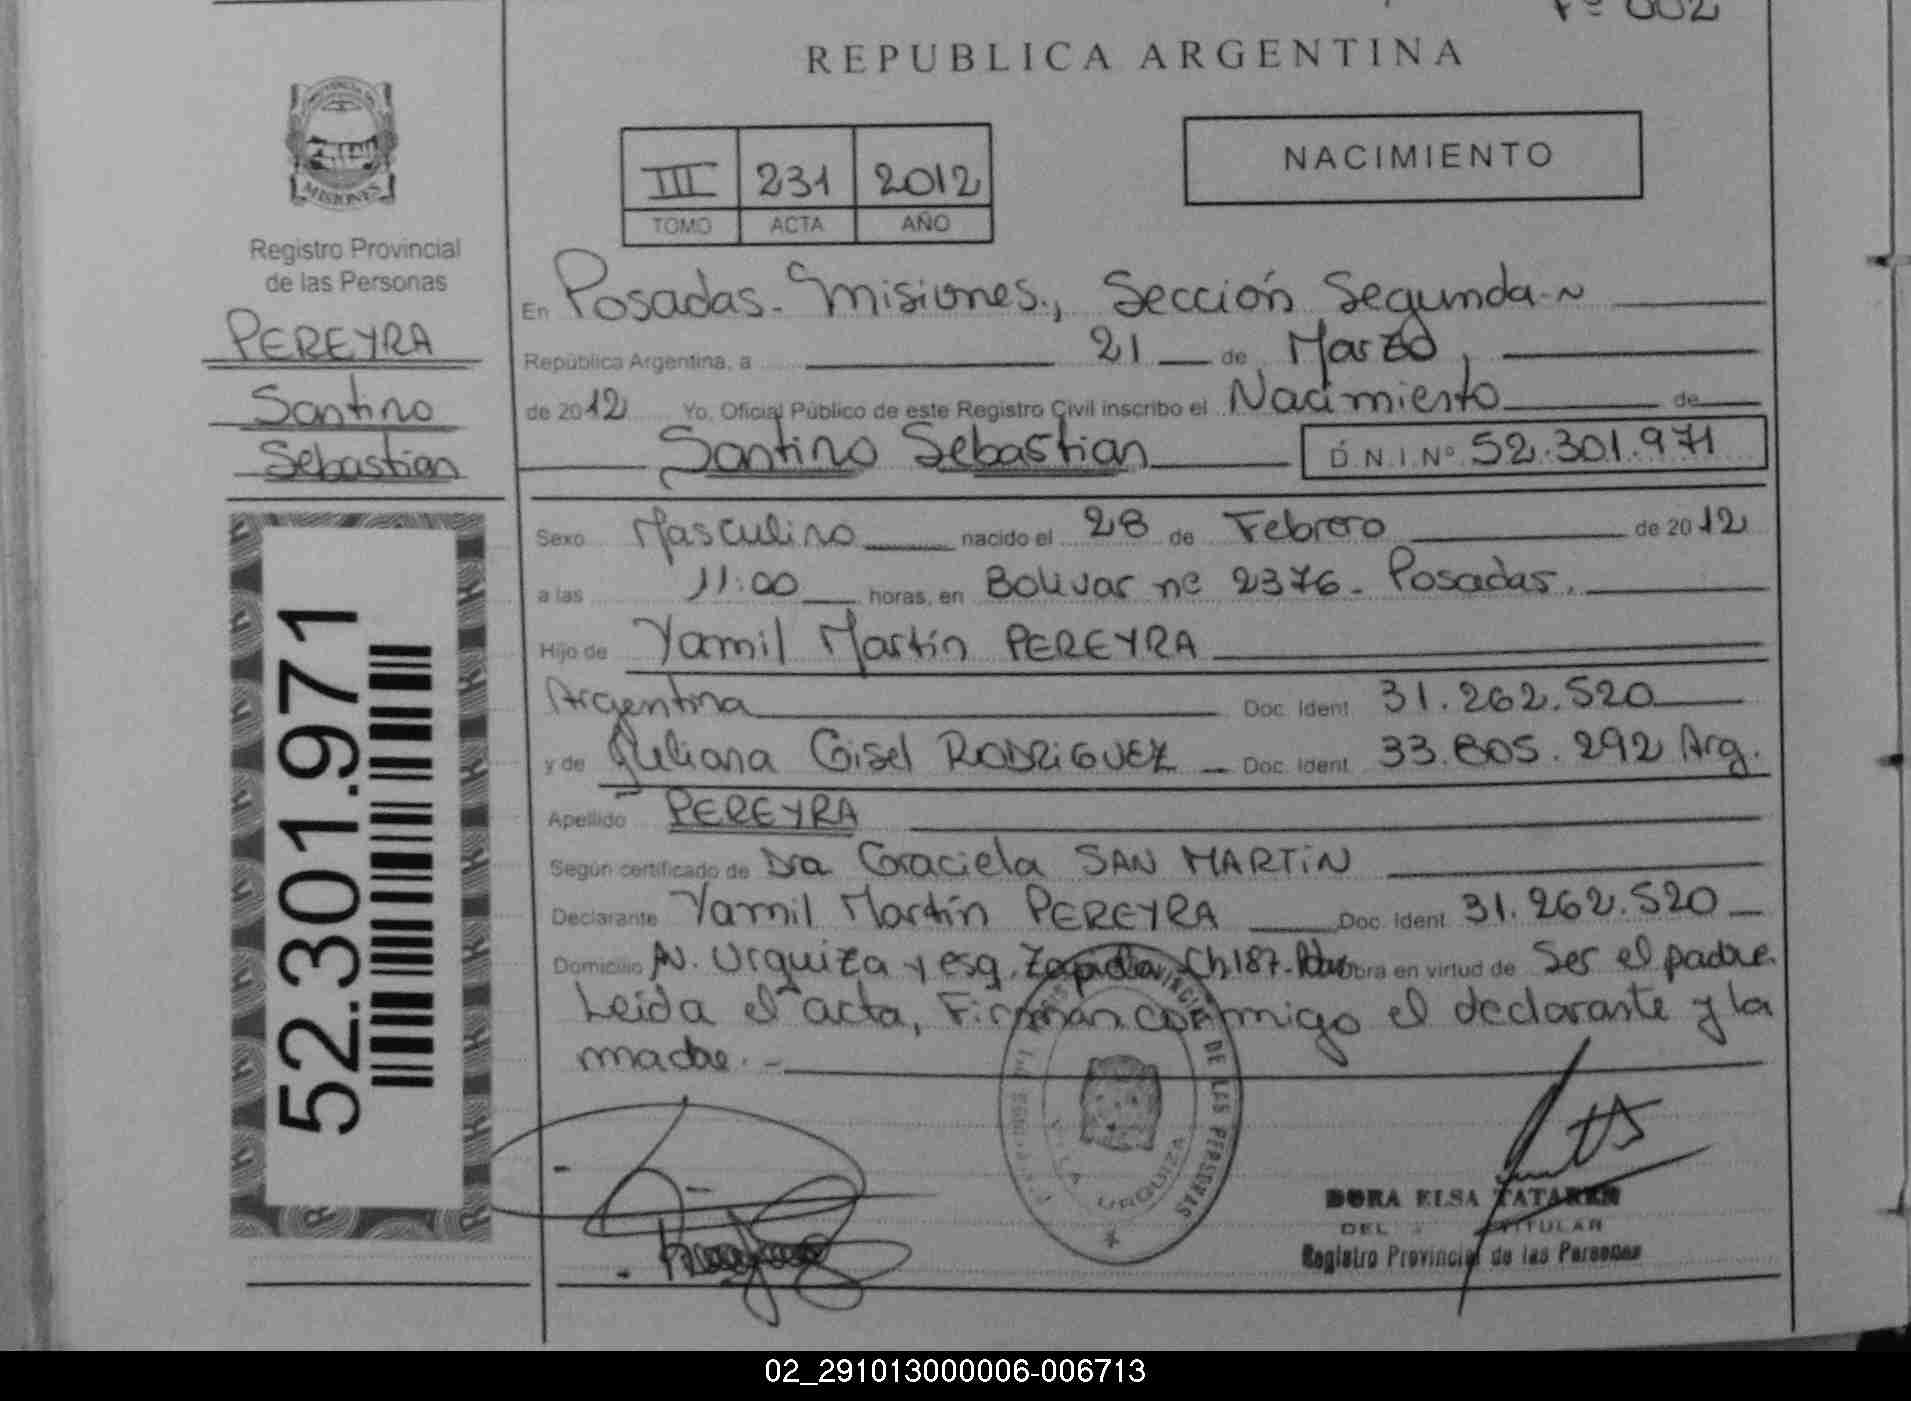 Fº 002
REPUBLICA ARGENTINA
PROVINCIA DE
MISIONES
Registro Provincial
de las Personas
PEREYRA
Santino
Sebastian
III 231 2012
TOMO ACTA AÑO
NACIMIENTO
En Posadas. Misiones., Sección Segunda
República Argentina, a 21 de Marzo,
de 2012 Yo, Oficial Público de este Registro Civil inscribo el Nacimiento de
Santino Sebastian D.N.I. Nº 52.301.971
Sexo Masculino nacido el 28 de Febrero de 2012
a las 11:00 horas, en Bolivar nº 2376. Posadas.
Hijo de Yamil Martín PEREYRA
Argentina Doc. Ident. 31.262.520
y de Juliana Gisel RODRIGUEZ Doc. Ident. 33.805.292 Arg.
Apellido PEREYRA
Según certificado de Dra Graciela SAN MARTIN
Declarante Yamil Martín PEREYRA Doc. Ident. 31.262.520
Domicilio Av. Urquiza y esq. Zapiola Ch 187. Pdas obra en virtud de Ser el padre.
Leída el acta, Firman conmigo el declarante y la
madre.-
52.301.971
REGISTRO PROVINCIAL DE LAS PERSONAS
VILLA URQUIZA
DORA ELSA TATAREN
DEL TITULAR
Registro Provincial de las Personas
02_291013000006-006713